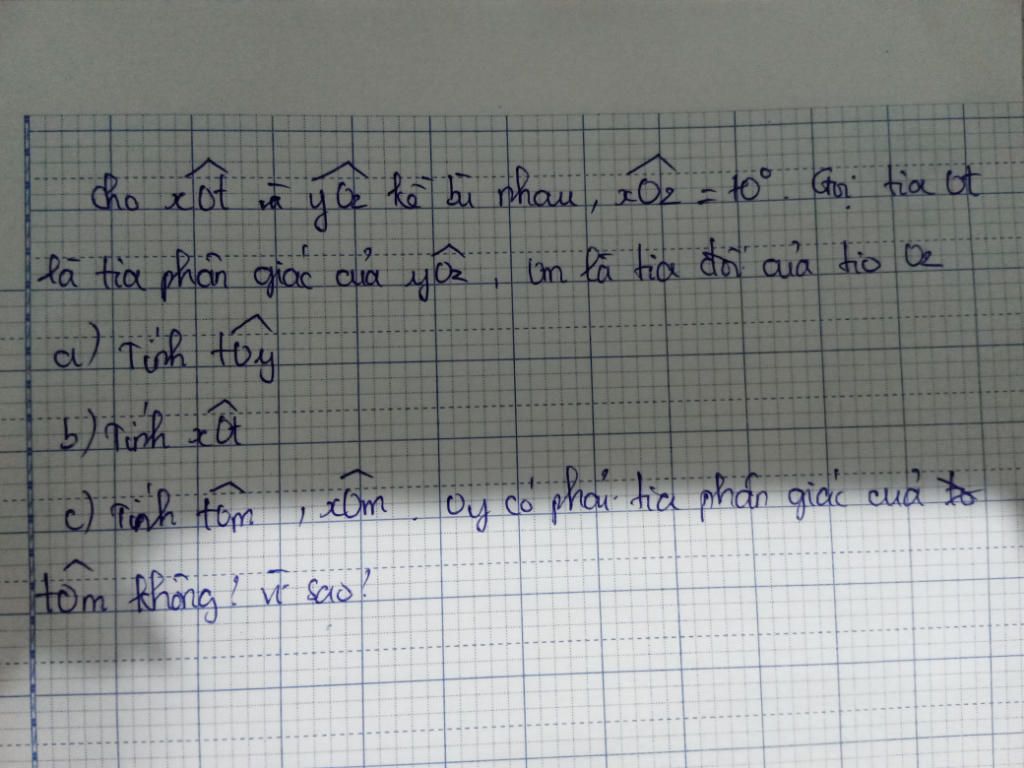 Cho xOt và yOz kề bù nhau, xOz = 70°. Gọi tia Ot
là tia phân giác của yOz, Om là tia đối của tia Oz
a) Tính tOy
b) Tính xOt
c) Tính tOm, xOm. Oy có phải tia phân giác của
tOm không? Vì sao?